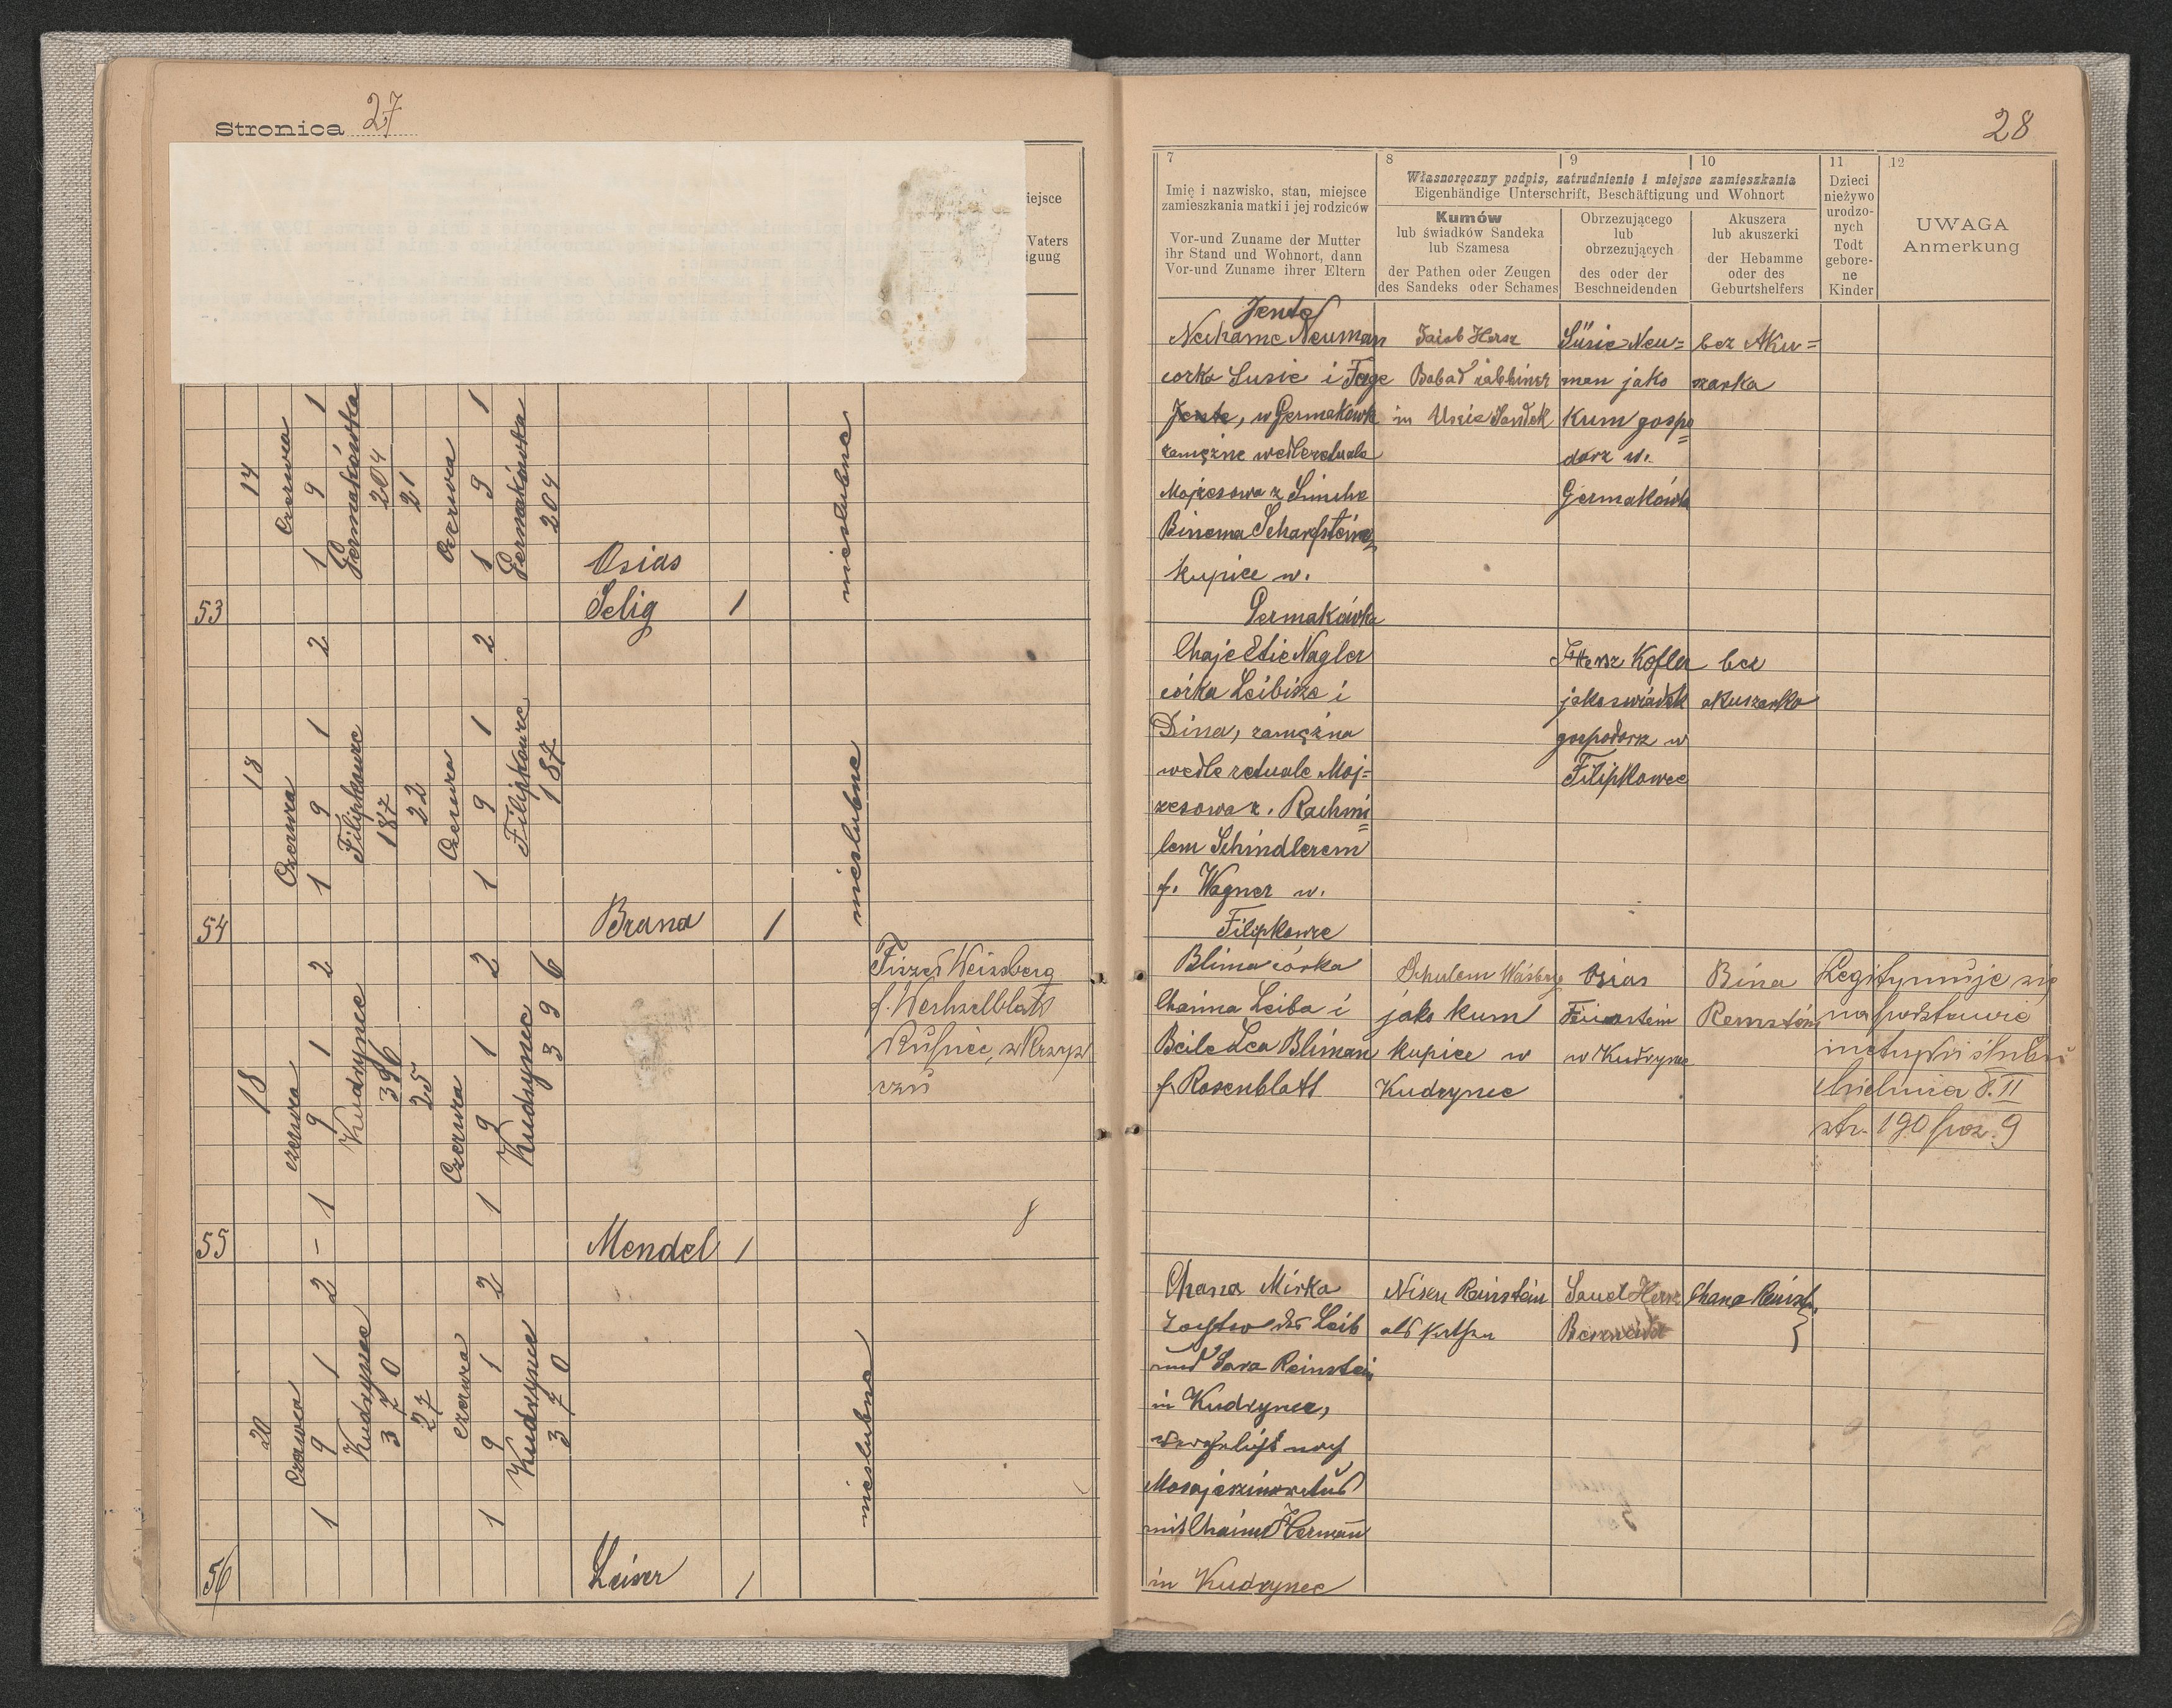 Stronica 27
28
iejsce
Vaters
igung
7
Imię i nazwisko, stan, miejsce
zamieszkania matki i jej rodziców
Vor-und Zuname der Mutter
ihr Stand und Wohnort, dann
Vor-und Zuname ihrer Eltern
8
9
10
Własnoręczny podpis, zatrudnienie i miejsce zamieszkania
Eigenhändige Unterschrift, Beschäftigung und Wohnort
Kumów
lub świadków Sandeka
lub Szamesa
der Pathen oder Zeugen
des Sandeks oder Schames
Obrzezującego
lub
obrzezujących
des oder der
Beschneidenden
Akuszera
lub akuszerki
der Hebamme
oder des
Geburtshelfers
11
Dzieci
nieżywo
urodzo-
nych
Todt
gebore-
ne
Kinder
12
UWAGA
Anmerkung
53
14
Czerwca
1 9 1 2
Germakówka
204
21
Czerwca
1 9 1 2
Germakówka
204
Osias
Selig
1
nieslubne
Jente
Nechame Neuman
corka Susie i Feige
Jente, w Germakówk
zamężne wedle retuale
Mojzesowa z Simche
Binema Scharfsteinez
kupice w.
Germakówka
Jakob Hersz
Babad rabbiner
in Uscie Sandek
Süsie Neu=
man jako
Kum gospo
darz w.
Germakówka
bez Aku=
szarka
54
18
Czerwca
1 9 1 2
Filipkowce
187
22
Czerwca
1 9 1 2
Filipkowce
187
Brana
1
nieslubne
Chaje Etie Nagler
córka Leibisze i
Dina, zamężna
wedle retuale Moj=
zesowa z. Rachmi
lem Schindlerem
f. Wagner w.
Filipkowce
Hersz Kofler
jako swiadek
gospodarz w
Filipkowce
bez
akuszarka
55
18
czerwca
1 9 1 2
Kudrynce
396
25
Czerwca
1 9 1 2
Kudrynce
3 9 6
Mendel
1
Fiszel Weissberg
f. Wechselblatt
Kupiec, w Krzyw
czu
8
Blima córka
Chaima Leiba i
Beile Lea Bliman
f. Rosenblatt
Schulem Waisberg
jako kum
kupice w
Kudrynce
Osias
Feierstein
w Kudrynce
Bina
Remstein
Legitymuje się
na podstawie
metryki ślubu
Mielnica T. II
str. 190 poz. 9
56
20
Czerwca
1 9 1 2
Kudrynce
3 7 0
27
czerwca
1 9 1 2
Kudrynce
3 7 0
Leiser
1
nieslubne
Chana Mirka
Tochter des Leib
und Sara Reinstein
in Kudrynce,
verehelicht nach
mit Chaim Herman
in Kudrynce
Nisen Reinstein
als
Saul Hersz
Chana Reinst.